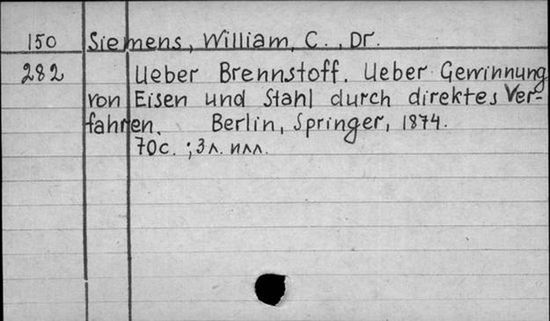 150 Siemens, William, C., Dr.
282 Ueber Brennstoff. Ueber Gewinnung
von Eisen und Stahl durch direktes Ver-
fahren. Berlin, Springer, 1874.
70с. ; 3 л. илл.